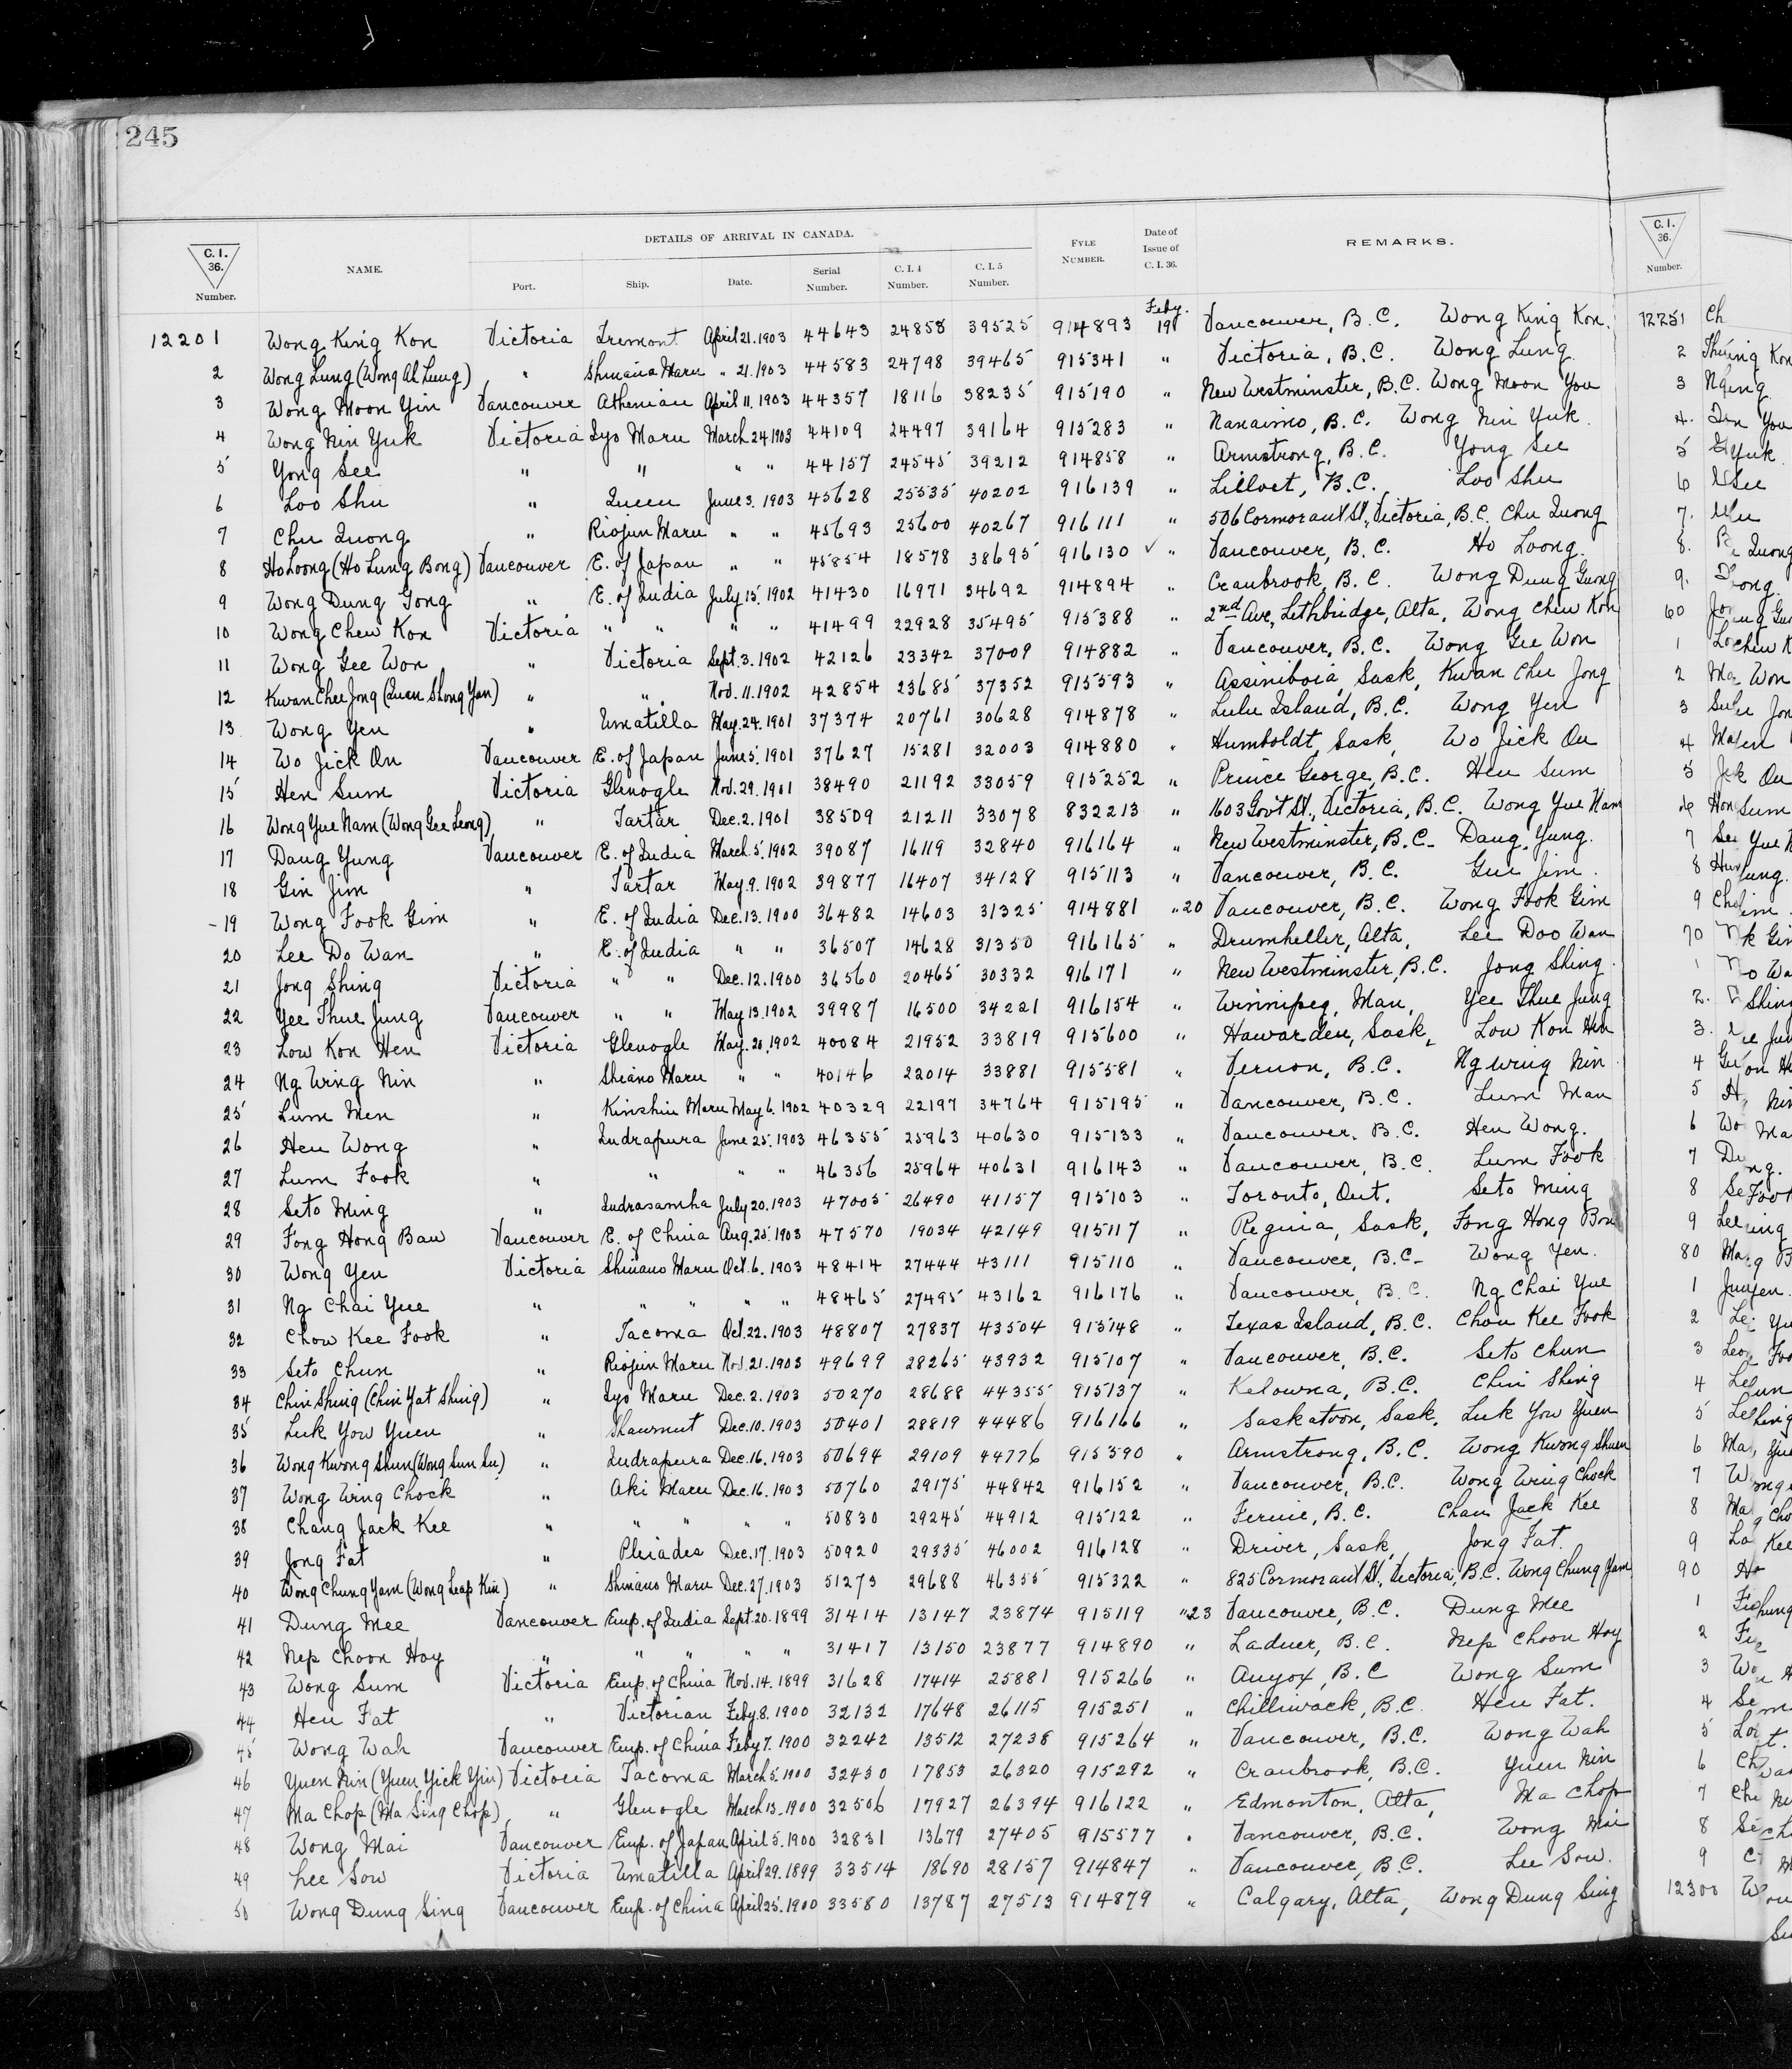 245
DETAILS OF ARRIVAL IN CANADA.
C. I. 36. Number. NAME. Port. Ship. Date. Serial Number. C. I. 4 Number. C. I. 5 Number. FYLE NUMBER. Date of Issue of C. I. 36. REMARKS. C. I. 36. Number.
Feby.
12201 Wong King Kon Victoria Tremont April 21. 1903 44643 24858 39525 914893 19 Vancouver, B.C. Wong King Kon.
2 Wong Lung (Wong Ah Lung) " Shinano Maru " 21. 1903 44583 24798 39465 915341 " Victoria, B.C. Wong Lung
3 Wong Moon Yin Vancouver Athenian April 11. 1903 44357 18116 38235 915190 " New Westminster, B.C. Wong Moon You
4 Wong Nin Yuk Victoria Iyo Maru March 24 1903 44109 24497 39164 915283 " Nanaimo, B.C. Wong Nin Yuk
5 Yong See " " " " 44157 24545 39212 914858 " Armstrong, B.C. Yong See
6 Loo Shu " Queen June 3. 1903 45628 25535 40202 916139 " Lilloet, B.C. Loo Shu
7 Chu Quong " Riojun Maru " " 45693 25600 40267 916111 " 506 Cormorant St., Victoria, B.C. Chu Quong
8 Ho Loong (Ho Lung Bong) Vancouver E. of Japan " " 45854 18578 38695 916130 ✓ " Vancouver, B.C. Ho Loong.
9 Wong Dung Gong " E. of India July 15. 1902 41430 16971 34692 914894 " Cranbrook, B.C. Wong Dung Gung
10 Wong Chew Kon Victoria " " " " 41499 22928 35495 915388 " 2nd Ave, Lethbridge, Alta, Wong Chew Kon
11 Wong Gee Won " Victoria Sept. 3. 1902 42126 23342 37009 914882 " Vancouver, B.C. Wong Gee Won
12 Kwan Chee Jong (Quen Shong Yan) " " Nov. 11. 1902 42854 23685 37352 915593 " Assiniboia, Sask, Kwan Chu Jong
13 Wong Yen " Umatilla May. 24. 1901 37374 20761 30628 914878 " Lulu Island, B.C. Wong Yen
14 Wo Jick On Vancouver E. of Japan June 5. 1901 37627 15281 32003 914880 " Humboldt, Sask, Wo Jick On
15 Hen Sum Victoria Glenogle Nov. 29. 1901 38490 21192 33059 915252 " Prince George, B.C. Hen Sum
16 Wong Yue Nam (Wong Gee Leong) " Tartar Dec. 2. 1901 38509 21211 33078 832213 " 1603 Gov't St., Victoria, B.C. Wong Yue Nam
17 Dang Yung Vancouver E. of India March. 5. 1902 39087 16119 32840 916164 " New Westminster, B.C. Dang Yung.
18 Gin Jim " Tartar May. 9. 1902 39877 16407 34128 915113 " Vancouver, B.C. Gin Jim.
19 Wong Fook Gim " E. of India Dec. 13. 1900 36482 14603 31325 914881 " 20 Vancouver, B.C. Wong Fook Gim
20 Lee Do Wan " E. of India " " 36507 14628 31350 916165 " Drumheller, Alta, Lee Doo Wan
21 Jong Shing Victoria " " Dec. 12. 1900 36560 20465 30332 916171 " New Westminster, B.C. Jong Shing.
22 Yee Thue Jung Vancouver " " May 13. 1902 39987 16500 34221 916154 " Winnipeg, Man, Yee Thue Jung
23 Low Kon Hen Victoria Glenogle May. 20. 1902 40084 21952 33819 915600 " Hawarden, Sask, Low Kon Hen
24 Ng Wing Nin " Shinano Maru " " 40146 22014 33881 915581 " Vernon, B.C. Ng Wing Nin
25 Lum Men " Kinshiu Maru May 6. 1902 40329 22197 34764 915195 " Vancouver, B.C. Lum Man
26 Hen Wong " Indrapura June 25. 1903 46355 25963 40630 915133 " Vancouver, B.C. Hen Wong.
27 Lum Fook " " " " 46356 25964 40631 916143 " Vancouver, B.C. Lum Fook
28 Seto Ming " Indrasamha July 20. 1903 47005 26490 41157 915103 " Toronto, Ont. Seto Ming
29 Fong Hong Bau Vancouver E. of China Aug. 25. 1903 47570 19034 42149 915117 " Regina, Sask, Fong Hong Bon
30 Wong Yen Victoria Shinano Maru Oct. 6. 1903 48414 27444 43111 915110 " Vancouver, B.C. Wong Yen.
31 Ng Chai Yue " " " " " 48465 27495 43162 916176 " Vancouver, B.C. Ng Chai Yue
32 Chow Kee Fook " Tacoma Oct. 22. 1903 48807 27837 43504 915148 " Texas Island, B.C. Chow Kee Fook
33 Seto Chun " Riojun Maru Nov. 21. 1903 49699 28265 43932 915107 " Vancouver, B.C. Seto Chun
34 Chin Shing (Chin Yat Shing) " Iyo Maru Dec. 2. 1903 50270 28688 44355 915137 " Kelowna, B.C. Chin Shing
35 Luk You Yuen " Shawmut Dec. 10. 1903 50401 28819 44486 916166 " Saskatoon, Sask. Luk You Yuen
36 Wong Kwong Shun (Wong Sun Su) " Indrapura Dec. 16. 1903 50694 29109 44776 915390 " Armstrong, B.C. Wong Kwong Shuen
37 Wong Wing Chock " Aki Maru Dec. 16. 1903 50760 29175 44842 916152 " Vancouver, B.C. Wong Wing Chock
38 Chang Jack Kee " " " " " 50830 29245 44912 915122 " Fernie, B.C. Chan Jack Kee
39 Jong Fat " Pleiades Dec. 17. 1903 50920 29335 46002 916128 " Driver, Sask, Jong Fat.
40 Wong Chung Yam (Wong Leap Kin) " Shinano Maru Dec. 27. 1903 51273 29688 46355 915322 " 825 Cormorant St., Victoria, B.C. Wong Chung Yam
41 Dung Mee Vancouver Emp. of India Sept. 20. 1899 31414 13147 23874 915119 " 23 Vancouver, B.C. Dung Mee
42 Nep Choon Hoy " " " " " 31417 13150 23877 914890 " Ladner, B.C. Nep Choon Hoy
43 Wong Sum Victoria Emp. of China Nov. 14. 1899 31628 17414 25881 915266 " Anyox, B.C Wong Sum
44 Hen Fat " Victorian Feby 8. 1900 32132 17648 26115 915251 " Chilliwack, B.C. Hen Fat.
45 Wong Wah Vancouver Emp. of China Feby 7. 1900 32242 13512 27238 915264 " Vancouver, B.C. Wong Wah
46 Yuen Nin (Yuen Yick Yin) Victoria Tacoma March 5. 1900 32430 17853 26320 915292 " Cranbrook, B.C. Yuen Nin
47 Ma Chop (Ma Sing Chop) " Glenogle March 13. 1900 32506 17927 26394 916122 " Edmonton, Alta, Ma Chop
48 Wong Mai Vancouver Emp. of Japan April 5. 1900 32831 13679 27405 915577 " Vancouver, B.C. Wong Mai
49 Lee Sow Victoria Umatilla April 29. 1899 33514 18690 28157 914847 " Vancouver, B.C. Lee Sow.
50 Wong Dung Sing Vancouver Emp. of China April 25. 1900 33580 13787 27513 914879 " Calgary, Alta, Wong Dung Sing
12251
2
3
4.
5
6
7.
8.
9.
60
1
2
3
4
5
6
7
8
9
70
1
2.
3.
4
5
6
7
8
9
80
1
2
3
4
5
6
7
8
9
90
1
2
3
4
5
6
7
8
9
12300